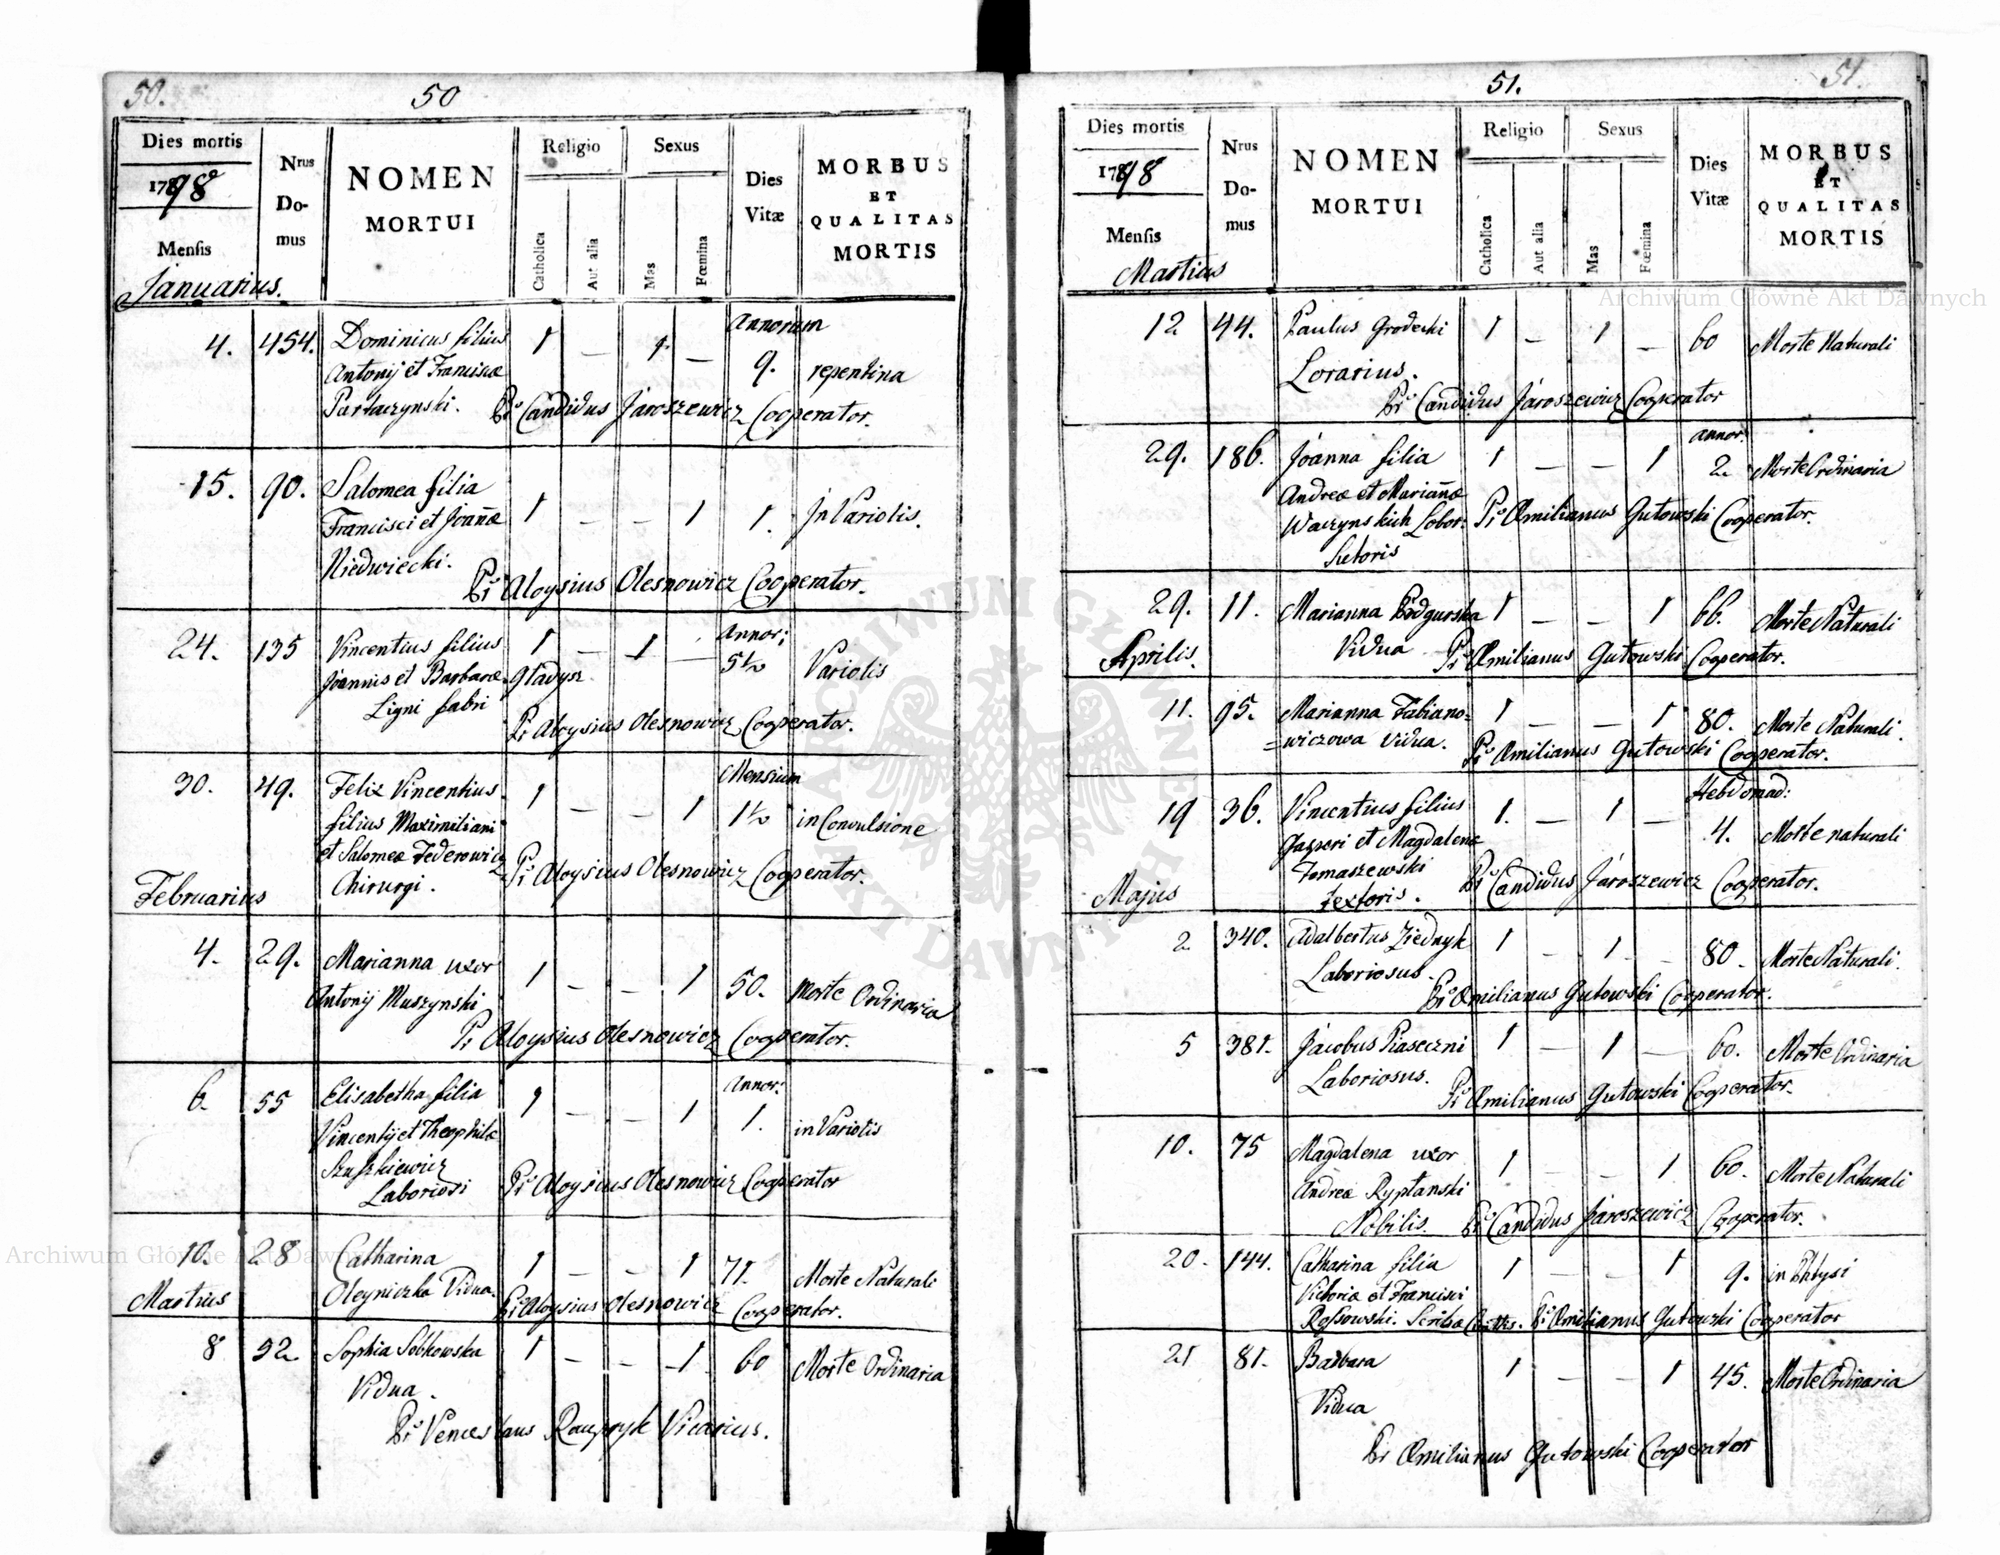 50.
50
Dies mortis
1798
Mensis
Januarius.
Nrus Do-mus
NOMEN MORTUI
Religio
Catholica
Aut alia
Sexus
Mas
Fœmina
Dies Vitæ
MORBUS ET QUALITAS MORTIS
4. 454. Dominicus filius 1 — 1. — Annorum 9. repentina
Antonij et Franciscæ
Partaczynski. Pr Candidus Jaroszewicz Cooperator.
15. 90. Salomea filia 1 — — 1 1. Jn Variolis.
Francisci et Joannæ
Niedwiecki.
Pr Aloysius Olesnowicz Cooperator.
24. 135 Vincentius filius 1 — 1 — Annor: 5½ Variolis
Joannis et Barbaræ Gladysz
Ligni fabri
Pr Aloysius Olesnowicz Cooperator.
30. 49. Felix Vincentius 1 — — 1 Mensium 1½ in Convulsione
filius Maximiliani
et Salomeæ Federowicz
Chirurgi. Pr Aloysius Olesnowicz Cooperator.
Februarius
4. 29. Marianna uxor 1 — — 1 50. Morte Ordinaria
Antonij Muszynski
Pr Aloysius Olesnowicz Cooperator.
6. 55 Elisabetha filia 1 — — 1 Annor: 1. in Variolis
Vincentij et Theophilæ
Laboriosi Pr Aloysius Olesnowicz Cooperator
10. 28 Catharina 1 — — 1 71. Morte Naturali
Oleyniczka Vidua.
Pr Aloysius Olesnowicz Cooperator.
Martius
8 52 Sophia Sobkowska 1 — — 1 60 Morte Ordinaria
Vidua.
Pr Venceslaus Vicarius.
51.
51.
Dies mortis
1798
Mensis
Martius
Nrus Do-mus
NOMEN MORTUI
Religio
Catholica
Aut alia
Sexus
Mas
Fœmina
Dies Vitæ
MORBUS ET QUALITAS MORTIS
12 44. Paulus Grodecki 1 — 1 — 60 Morte Naturali
Lorarius.
Pr Candidus Jaroszewicz Cooperator
29. 186. Joanna filia 1 — — 1 annor. 2. Morte Ordinaria
Andreæ et Mariannæ
Waczynskich Lobor:
Sutoris
Pr Œmilianus Gutowski Cooperator.
29. 11. Marianna Podgurska 1 — — 1 66. Morte Naturali
Vidua Pr Œmilianus Gutowski Cooperator.
Aprilis.
11. 95. Marianna Fabiano= 1 — — 1 80. Morte Naturali.
=wiczowa Vidua. Pr Œmilianus Gutowski Cooperator.
19 36. Vincentius filius 1. — 1 — Hebdomad: 4. Morte naturali
Gasperi et Magdalenæ
Tomaszewski
Textoris. Pr Candidus Jaroszewicz Cooperator.
Majus
2 340. Adalbertus Ziednyk 1 — 1 — 80. Morte Naturali.
Laboriosus.
Pr Œmilianus Gutowski Cooperator.
5 381. Jacobus Piaseczni 1 — 1 — 60. Morte Ordinaria
Laboriosus.
Pr Œmilianus Gutowski Cooperator.
10. 75 Magdalena uxor 1 — — 1 60. Morte Naturali
Andreæ Ryptanski
Nobilis. Pr Candidus Jaroszewicz Cooperator.
20. 144. Catharina filia 1 — — 1 9. in Phtysi
Victoriæ et Francisci
Rossowski. Scribæ Pr Œmilianus Gutowski Cooperator
21 81. Barbara 1 — — 1 45. Morte Ordinaria
Vidua
Pr Œmilianus Gutowski Cooperator
Archiwum Główne Akt Dawnych
Archiwum Główne Akt Dawnych
ARCHIWUM GŁÓWNE AKT DAWNYCH